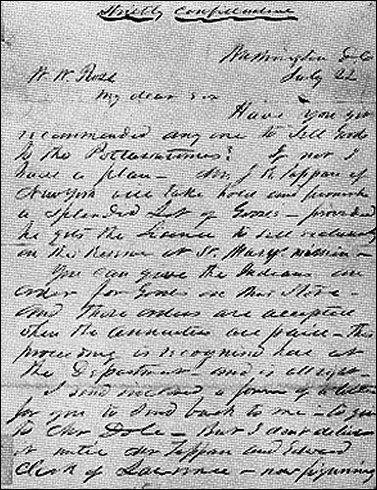 Strictly Confidential
Washington D C
July 22
W. W. Ross
My dear Sir
Have you yet
recommended any one to Sell Goods
to the Pottawatomies? If not I
have a plan — Mr J H Tappan of
New York will take hold and furnish
a Splendid Lot of Goods — provided
he gets the License to sell exclusively
on the Reserve at St. Mary's mission —
You can give the Indians an
order for Goods on this Store —
and those orders are accepted
when the annuities are paid — this
proceeding is recognized here at
the Department — and is all right —
I send inclosed a form of a letter
for you to Send back to me — to give
to Mr Dole — But I dont deliver
it until Mr Tappan and Edward
Clark of Lawrence — now